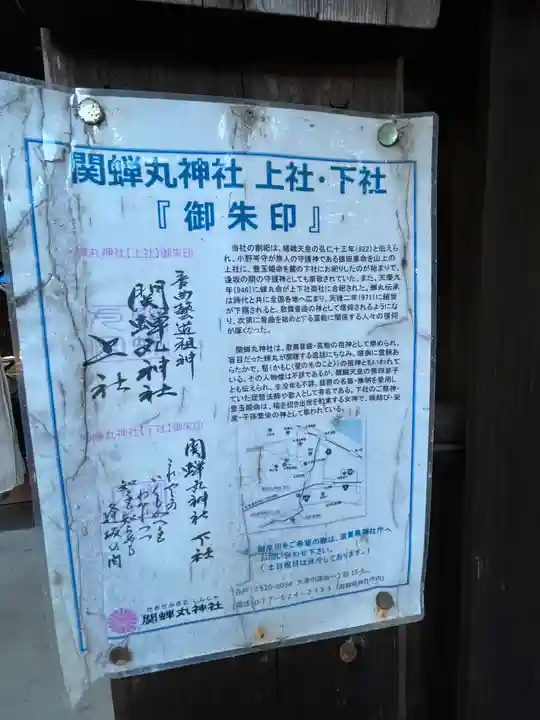 関蝉丸神社 上社・下社
『御朱印』
蝉丸神社【上社】御朱印
音曲藝道祖神
関蝉丸神社
上社
当社の創祀は、嵯峨天皇の弘仁十三年(822)と伝えら
れ、小野岑守が旅人の守護神である猿田彦命を山上の
上社に、豊玉姫命を麓の下社にお祀りしたのが始まりで、
逢坂の関の守護神としても崇敬されています。また、天慶九
年(946)に蝉丸命が上下社両社に合祀された。蝉丸伝承
は時代と共に全国各地へ広まり、天禄二年(971)に綸旨
が下賜されると、歌舞音曲の神として信仰されるようにな
り、次第に音曲を始めとする芸能に関係する人々の信仰
が厚くなった。
関蝉丸神社は、歌舞音曲・芸能の祖神として崇められ、
盲目だった蝉丸が開眼する逸話にちなみ、眼病に霊験あ
らたかで、髢(かもじ(髪のものこと))の祖神ともいわれて
いる。その人物像は不詳であるが、醍醐天皇の第四皇子
とも伝えられ、生没年も不詳。琵琶の名器・無明を愛用し
ていた琵琶法師や歌人として有名である。下社のご祭神・
豊玉姫命は、福を招き出世を約束する女神で、縁結び・安
産・子孫繁栄の神として敬われている。
関蝉丸神社【下社】御朱印
関蝉丸神社 下社
これやこの
わかれつつ
知るも知らぬも
逢坂の関
御朱印をご希望の際は、滋賀県神社庁へ
お問い合わせ下さい。
(土日祝日は休庁しております。)
せきせみまるじんじゃ
関蝉丸神社